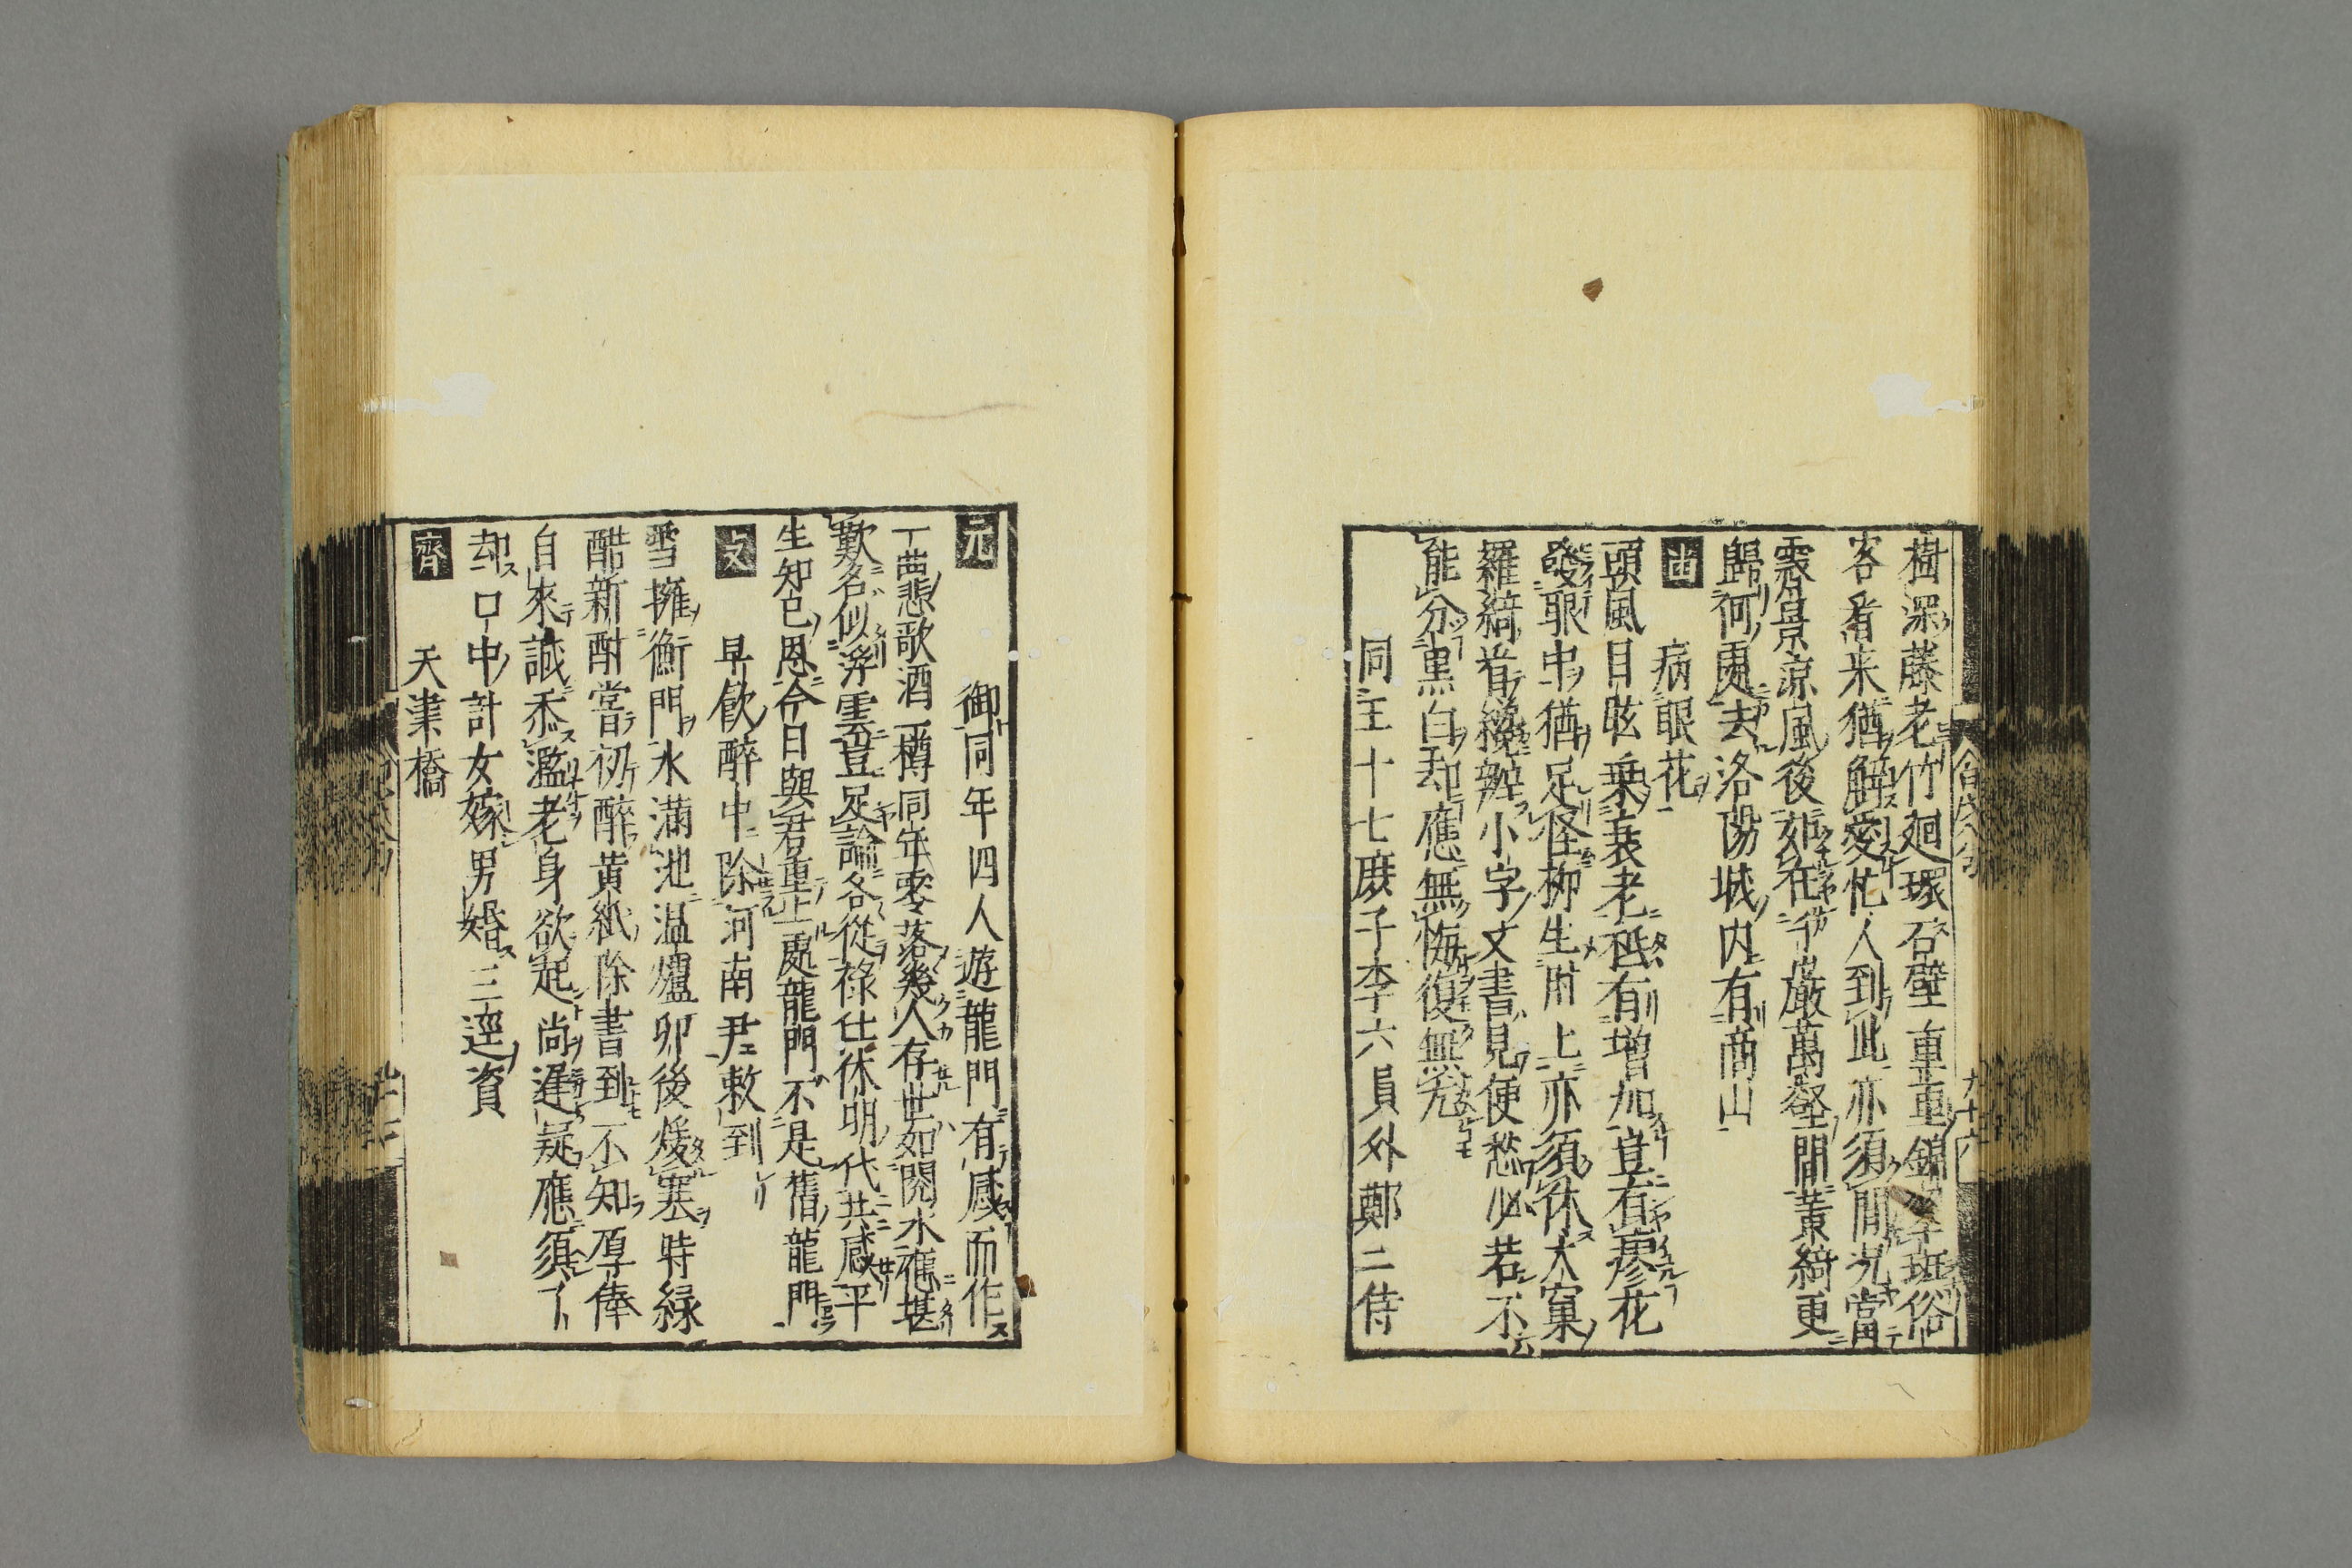 樹深藤老竹廻環石壁重重錦翠斑俗
客看来猶解愛忙人到此亦須間況當
霽景凉風後如在千巖萬壑間黄綺更
歸何處去洛陽城内有商山
病眼花
頭風目眩乗衰老秪有増加豈有瘳花
發眼中猶足怪柳生肘上亦須休大窠
羅綺看纔辧小字文書見便愁必若不
能分黒白却應無悔復無尤
同王十七庻子李六員外鄭二侍
元 御同年四人遊龍門有感而作
一曲悲歌酒一樽同年零落幾人存世如閲水應堪
歎名似浮雲豈足論各從祿仕休明代共感平
生知已恩今日與君重上處龍門不是舊龍門
文 早飲醉中除河南尹敕到
雪擁衡門水滿池温爐卯後煖寒時緑
醅新酎當初醉黄紙除書到不知厚俸
自來誠忝濫老身欲起尚遲疑應須了
却口中計女嫁男婚三逕資
齊 天津橋